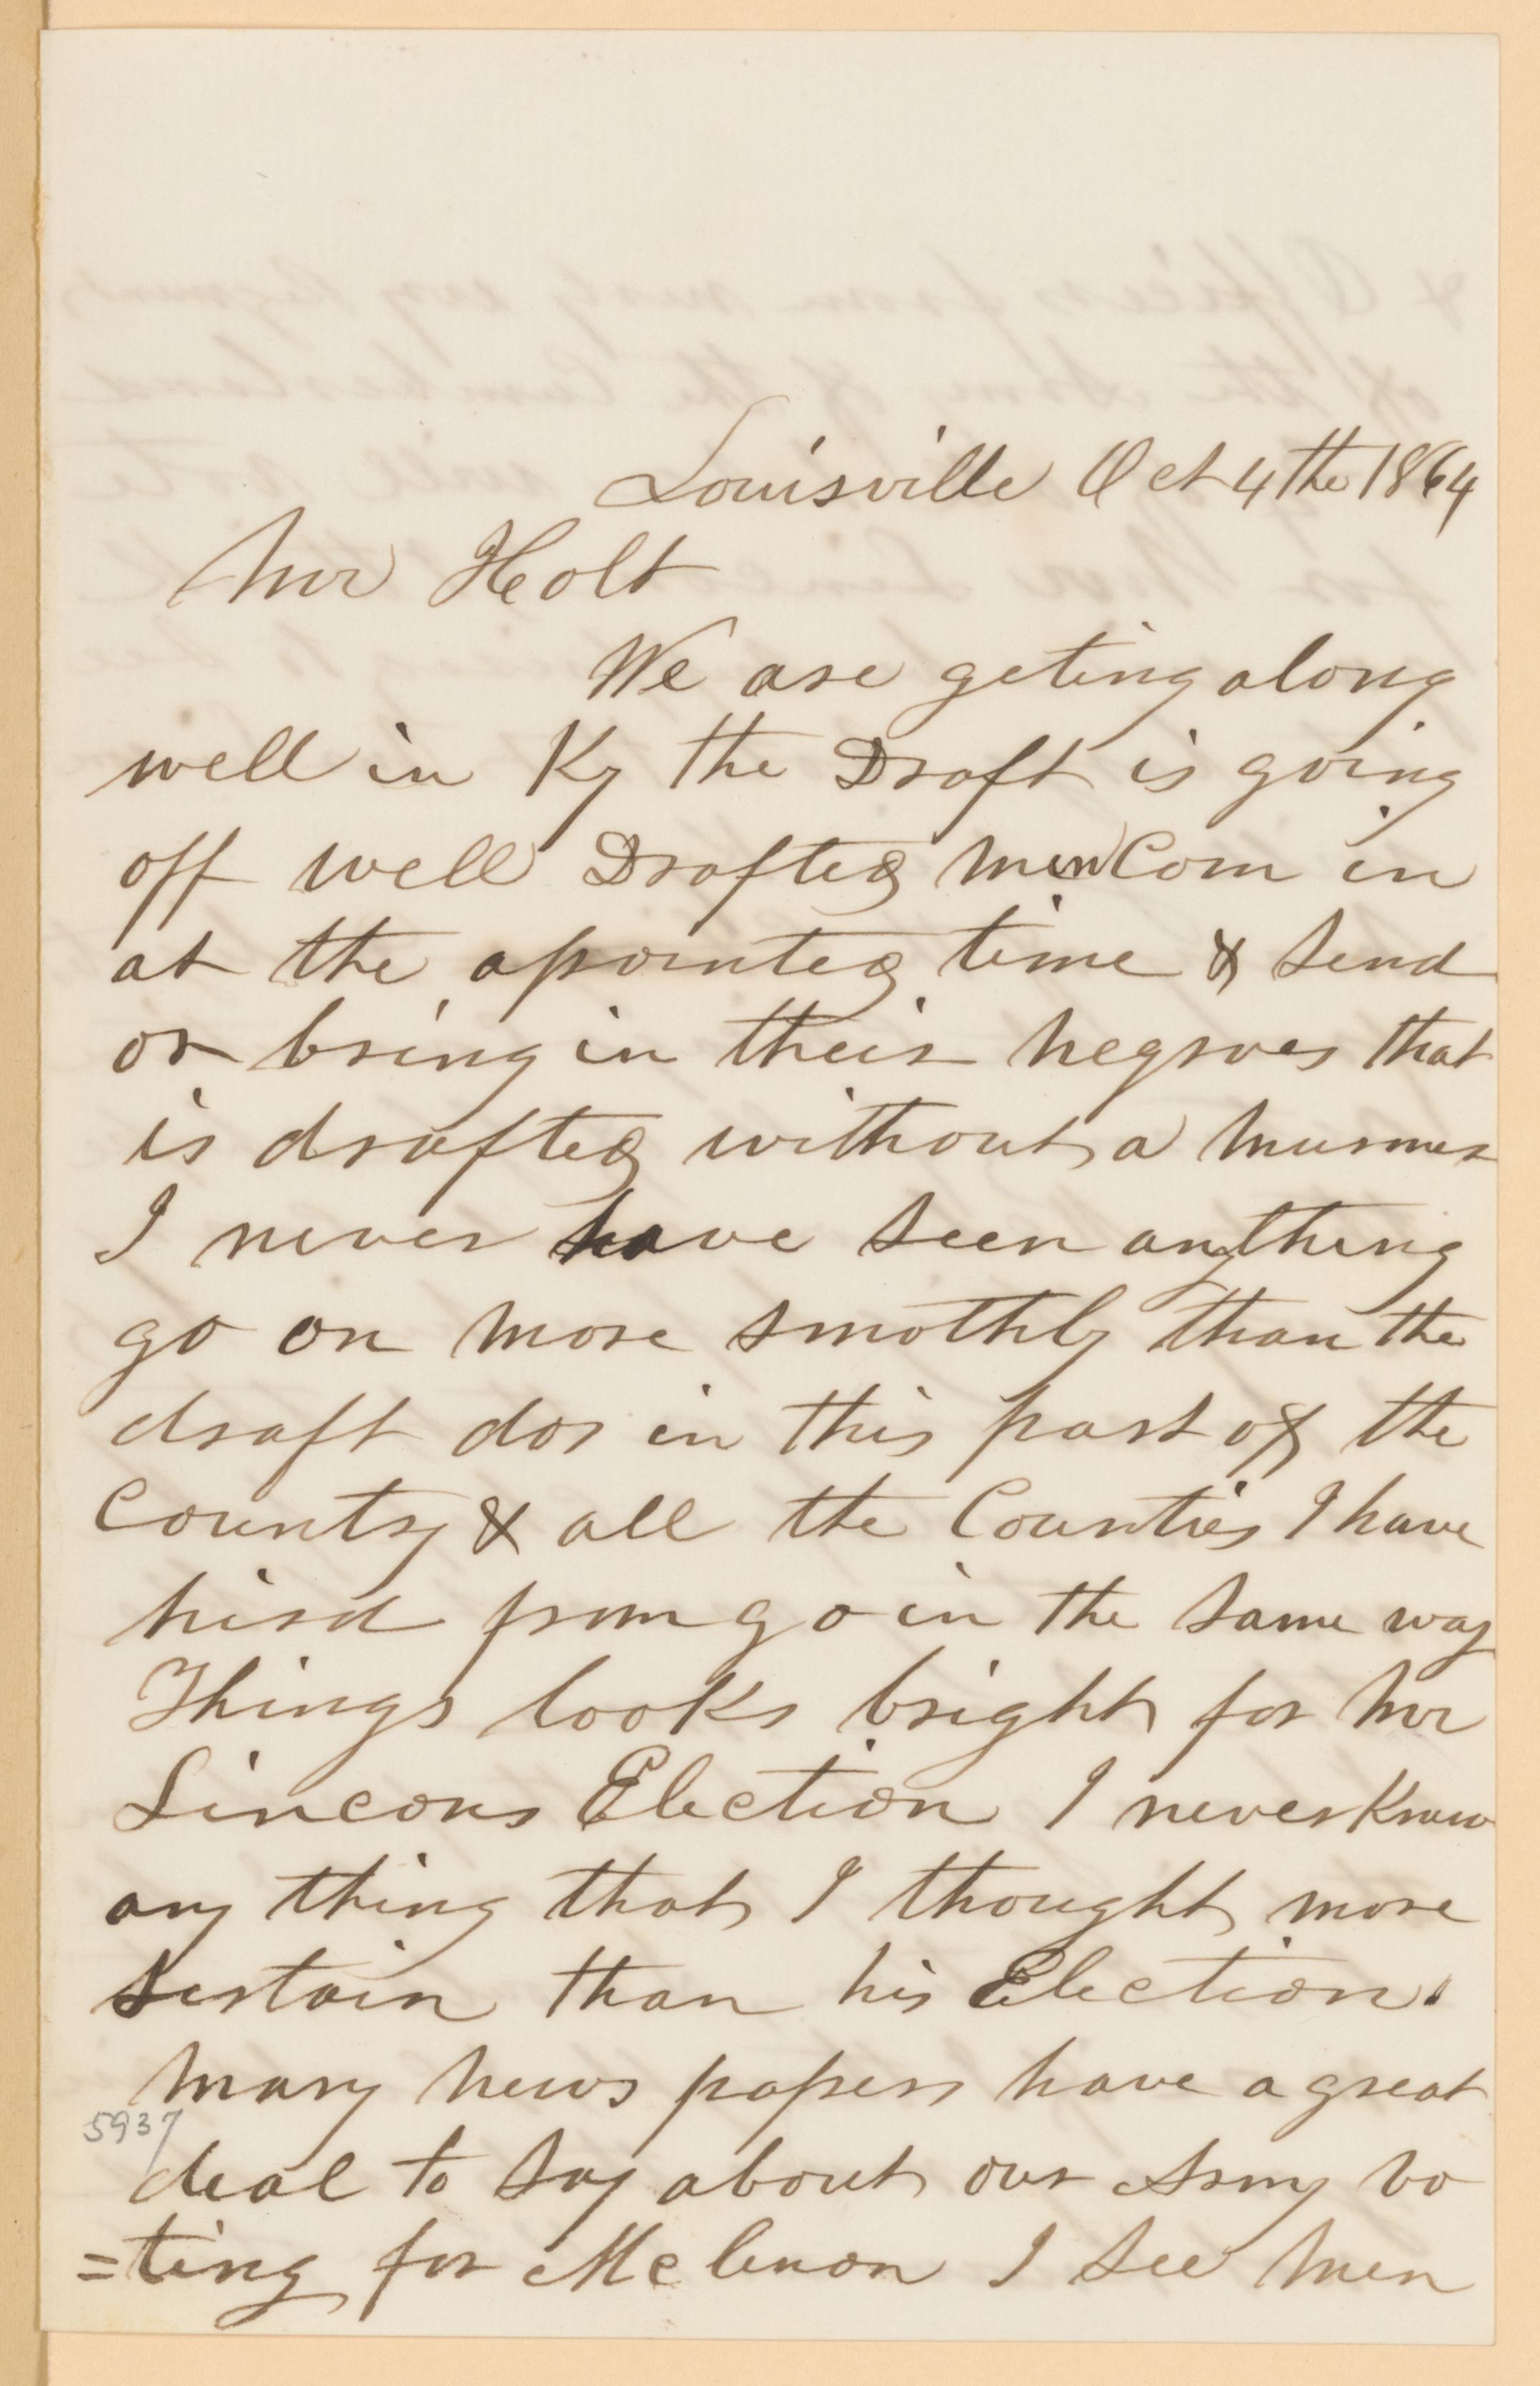 Louisville Oct 4th 1864
Mr Holt
We are geting along
well in Ky the Draft is going
off well Drafted men Com in
at the apointed time & send
or bring in their negroes that
is drafted without a murmer
I never have seen anything
go on more smothly than the
draft dos in this part of the
County & all the Counties I have
hird from go in the same way
Things looks bright for Mr
Lincons Election I never knew
any thing that I thought more
sertain than his Election.
Many news papers have a great
5937
deal to say about our Army vo
=ting for Mclenon I see men